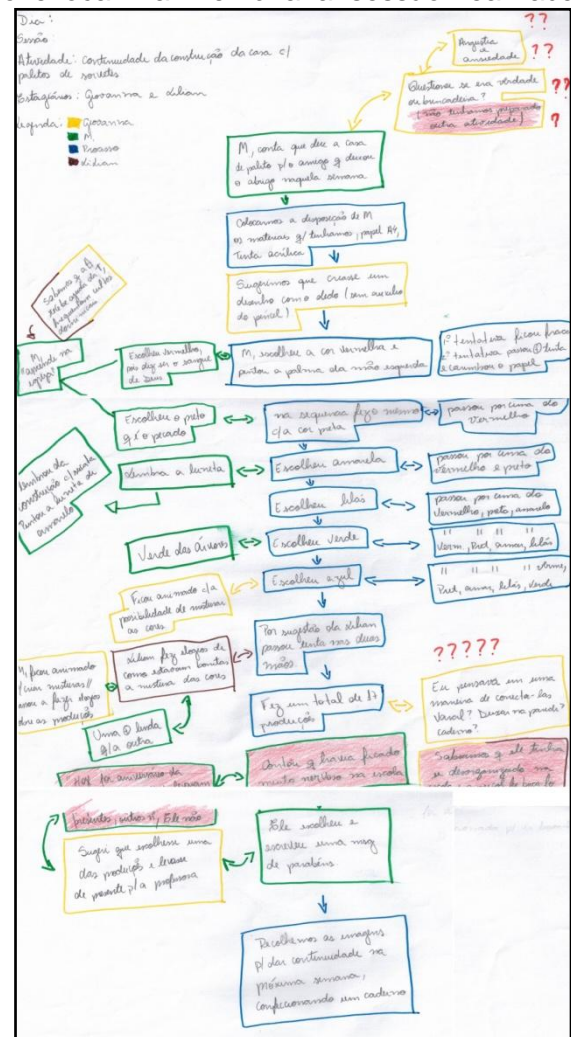 Dia:
Sessão
Atividade: Continuidade da construção da casa c/
palitos de sorvetes
Estagiárias: Giovanna e Lilian
Legenda: Giovanna
M.
Processo
Lilian
??
Angústia
e
ansiedade
??
Questiona se era verdade
ou brincadeira?
(não tínhamos preparado
outra atividade)
??
?
M, conta que deu a casa
de palito p/o amigo q deixou
o abrigo naquela semana
Colocamos a disposição de M
os materiais q/ tínhamos, papel A4,
Tinta acrílica
Sugerimos que criasse um
desenho com o dedo (sem auxílio
do pincel)
Sabemos q a
M,
"aprende na
igreja"
Escolheu vermelho,
pois diz ser o sangue
de Jesus
M, escolheu a cor vermelha e
pintou a palma da mão esquerda
1ª tentativa ficou fraca
2ª tentativa passou + tinta
e carimbou o papel
Escolheu o preto
q é o pecado
na sequencia fez o mesmo
c/a cor preta
passou por cima do
vermelho
Lembrou da
construção c/
Pintou a luneta de
amarelo
Lembra a luneta
Escolheu amarela
passou por cima do
vermelho e preto
Escolheu lilás
passou por cima do
vermelho, preto, amarelo
Verde das árvores
Escolheu verde
" " " "
Verm, Pret, amar, lilás
Ficou animado c/a
possibilidade de misturar
as cores
Escolheu azul
" " " " Verme,
Pret, amar, lilás, verde
M, ficou animado
/criar misturas//
a fazer elogios
as produções
Lilian fez elogios de
como estavam bonitas
a mistura das cores
Por sugestão da Lilian
passou tinta nas duas
mãos
?????
Uma + linda
q/a outra
Fez um total de 17
produções
Eu pensava em uma
maneira de conecta-las
Varal? Deixar na parede?
caderno?
Hoje foi aniversário da
Contou q havia ficado
muito nervoso na escola
Sabemos q ele tinha
se desorganizado na
presentes, outros ñ, Ele não
Sugeri que escolhesse uma
das produções e levasse
de presente p/a professora
Ele escolheu e
escreveu uma msg
de parabéns
Recolhemos as imagens
p/ dar continuidade na
próxima semana,
confeccionando um caderno